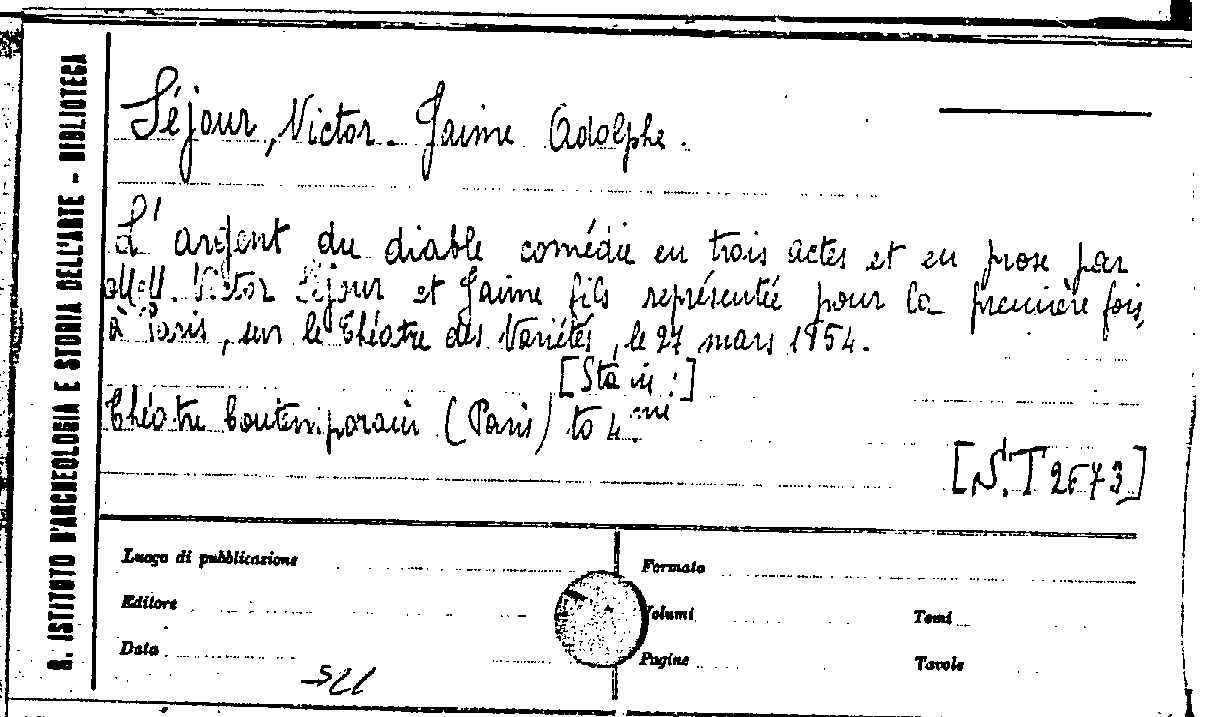 R. ISTITUTO D'ARCHEOLOGIA E STORIA DELL'ARTE - BIBLIOTECA
Séjour, Victor - Jaime Adolphe.
L'argent du diable comédie en trois actes et en prose par
MM. Victor Séjour et Jaime fils représentée pour la première fois,
à Paris, sur le théâtre des Variétés, le 27 mars 1854.
[Sta in:]
Théâtre Contemporain (Paris) to 4.me
[S.T 2673]
Luogo di pubblicazione
Formato
Editore
Volumi
Tomi
Data
Pagine
Tavole